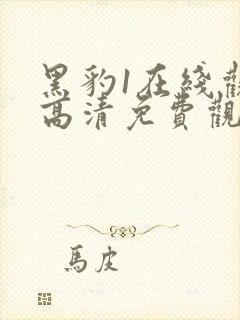 黑豹1在綫觀
高清免費觀
馬皮